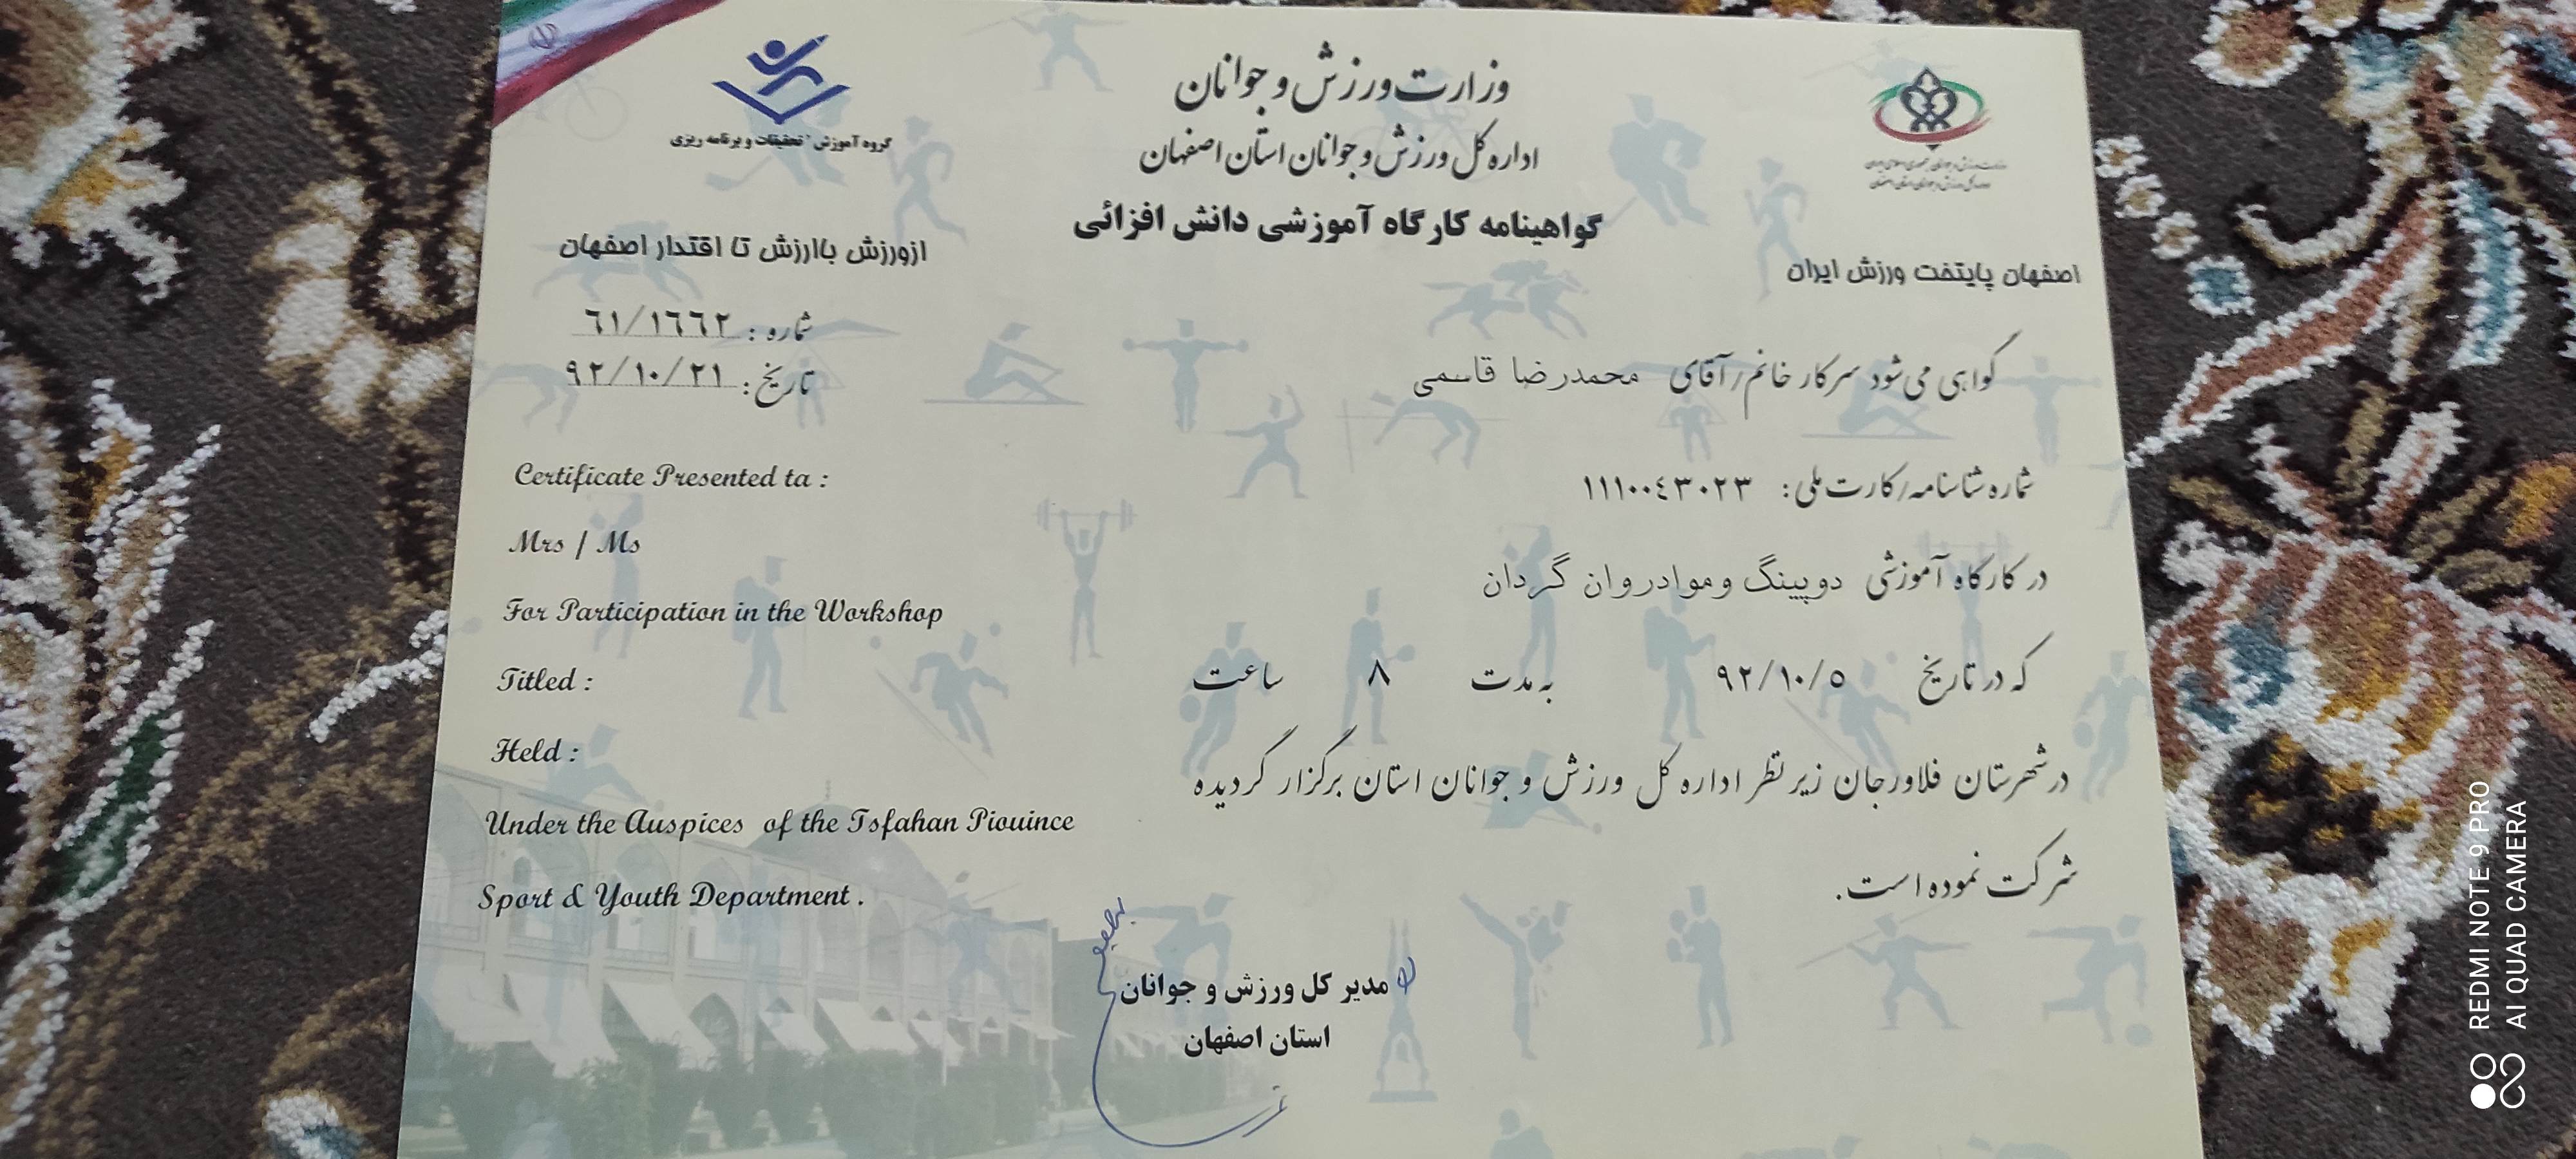 وزارت ورزش و جوانان
اداره کل ورزش و جوانان استان اصفهان
گواهینامه کارگاه آموزشی دانش افزائی
گروه آموزش ' تحقیقات و برنامه ریزی
اصفهان پایتخت ورزش ایران
ازورزش باارزش تا اقتدار اصفهان
شماره : ٦١/١٦٦٢
تاریخ : ٩٢/١٠/٢١
گواهی می شود سرکار خانم/آقای محمدرضا قاسمی
شماره شناسنامه/کارت ملی : ١١١٠٠٤٣٠٢٣
در کارگاه آموزشی دوپینگ وموادروان گردان
که در تاریخ ٩٢/١٠/٥ به مدت ٨ ساعت
در شهرستان فلاورجان زیر نظر اداره کل ورزش و جوانان استان برگزار گردیده
شرکت نموده است.
Certificate Presented ta :
Mrs / Ms
For Participation in the Workshop
Titled :
Held :
Under the Auspices of the Tsfahan Piouince
Sport & Youth Department .
مدیر کل ورزش و جوانان
استان اصفهان
REDMI NOTE 9 PRO
AI QUAD CAMERA